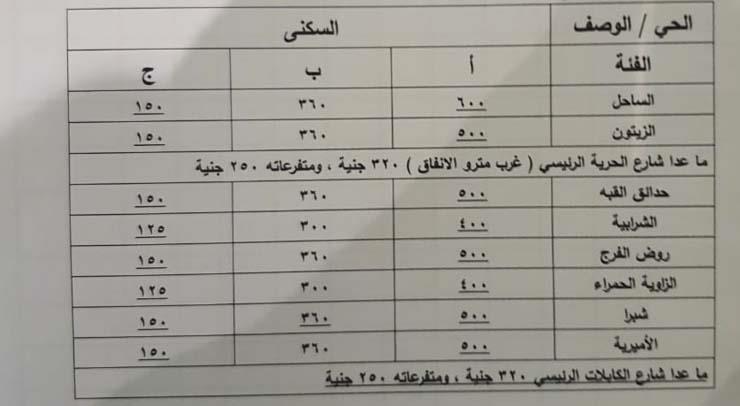 الحي / الوصف السكنى
الفئة أ ب ج
الساحل ٦٠٠ ٣٦٠ ١٥٠
الزيتون ٥٠٠ ٣٦٠ ١٥٠
ما عدا شارع الحرية الرئيسي ( غرب مترو الانفاق ) ٣٢٠ جنية ، ومتفرعاته ٢٥٠ جنية
حدائق القبه ٥٠٠ ٣٦٠ ١٥٠
الشرابية ٤٠٠ ٣٠٠ ١٢٥
روض الفرج ٥٠٠ ٣٦٠ ١٥٠
الزاوية الحمراء ٤٠٠ ٣٠٠ ١٢٥
شبرا ٥٠٠ ٣٦٠ ١٥٠
الأميرية ٥٠٠ ٣٦٠ ١٥٠
ما عدا شارع الكابلات الرئيسي ٣٢٠ جنية ، ومتفرعاته ٢٥٠ جنية